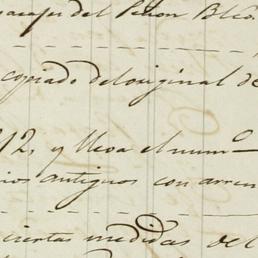 parajes del Peñon Blco.
copiado del original de
912, y lleva el numo
rios antiguos con arren
ciertas medidas del